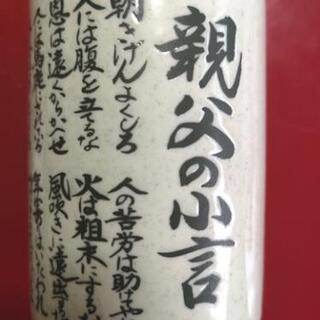 親父の小言
朝きげんよくしろ
人には腹を立てるな
恩は遠くからかへせ
人の苦労は助けてや
火は粗末にするな
風吹きに遠出する
年寄はいたわれ